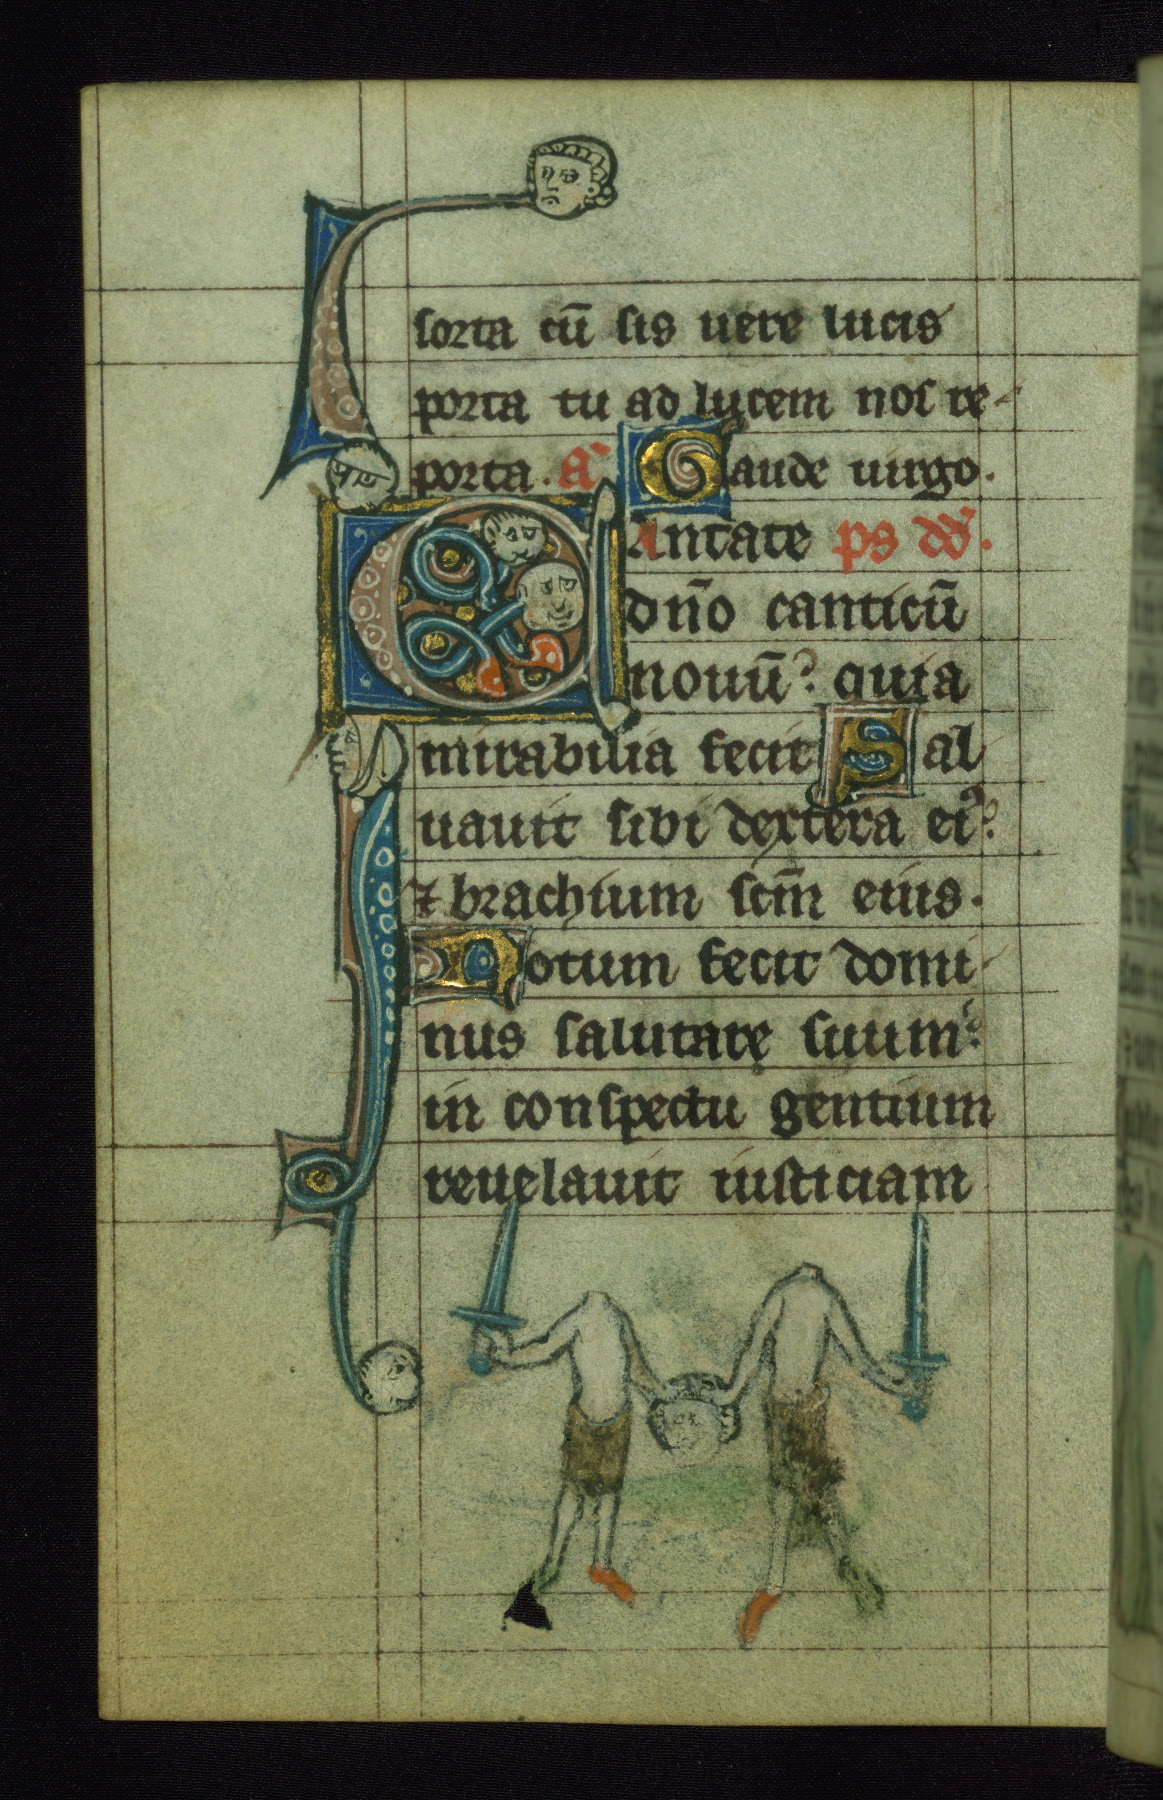 sorta cū sis uere lucis
porta tu ad lucem nos re-
porta. añ Gaude uirgo.
Cantate ps dd.
dño canticū
nouū? quia
mirabilia fecit Sal
uauit sibi dextera ei⁹?
⁊ brachium scm̄ eius.
Notum fecit domi-
nus salutare suum?
in conspectu gentium
reuelauit iusticiam